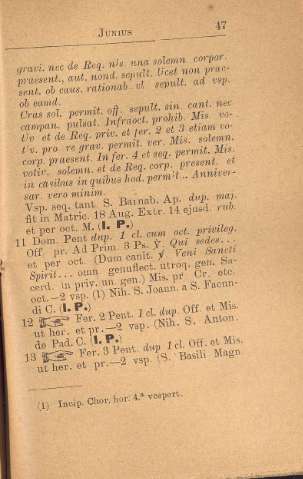 JUNIUS 47
gravi. nec de Req. nis. una solemn corpor.
praesent., aut. nond. sepult. licet non prae-
sent. ob caus. rationab. vl sepult. ad vsp.
ob eamd.
Cras sol. permit. off. sepult. sin. cant. nec
campan. pulsat. Infraoct. prohib. Mis. vo-
tivo et de Req. priv. et fer. 2 et 3 etiam vo-
tv. pro re grav. permit. ver. Mis. solemn.
corp. praesent. In fer. 4 et seq. permit. Mis.
votiv. solemn. et de Req. corp. present. et
in casibus in quibus hod. permit.. Anniver-
sar. vero minim.
Vsp. seq. tant. S. Barnab. Ap. dup. maj.
fit in Matric. 18 Aug. Extr. 14 ejusd. rub.
et per oct. M. (I. P.)
11 Dom. Pent dup. 1 cl. cum oct. privileg.
Off. pr. Ad Prim. 3 Ps. ℣. Qui sedes...
et per oct. (Dum canit. ℣ Veni Sancti
Spirit... omn. genuflect. utroq. gen. Sa-
cerd. in priv. un. gen.) Mis. pr Cr. etc.
oct.—2 vsp. (1) Nih. S. Joann. a S. Facun-
di C. (I. P.)
12 ☞ Fer. 2 Pent. 1 cl. dup. Off. et Mis.
ut her. et pr.—2 vsp. (Nih. S. Anton.
de Pad. C. (I. P.)
13 ☞ Fer. 3 Pent. dup 1 cl. Off. et Mis.
ut her. et pr.—2 vsp. (S. Basili Magn
(1) Incip. Chor. hor. 4.ª vespert.